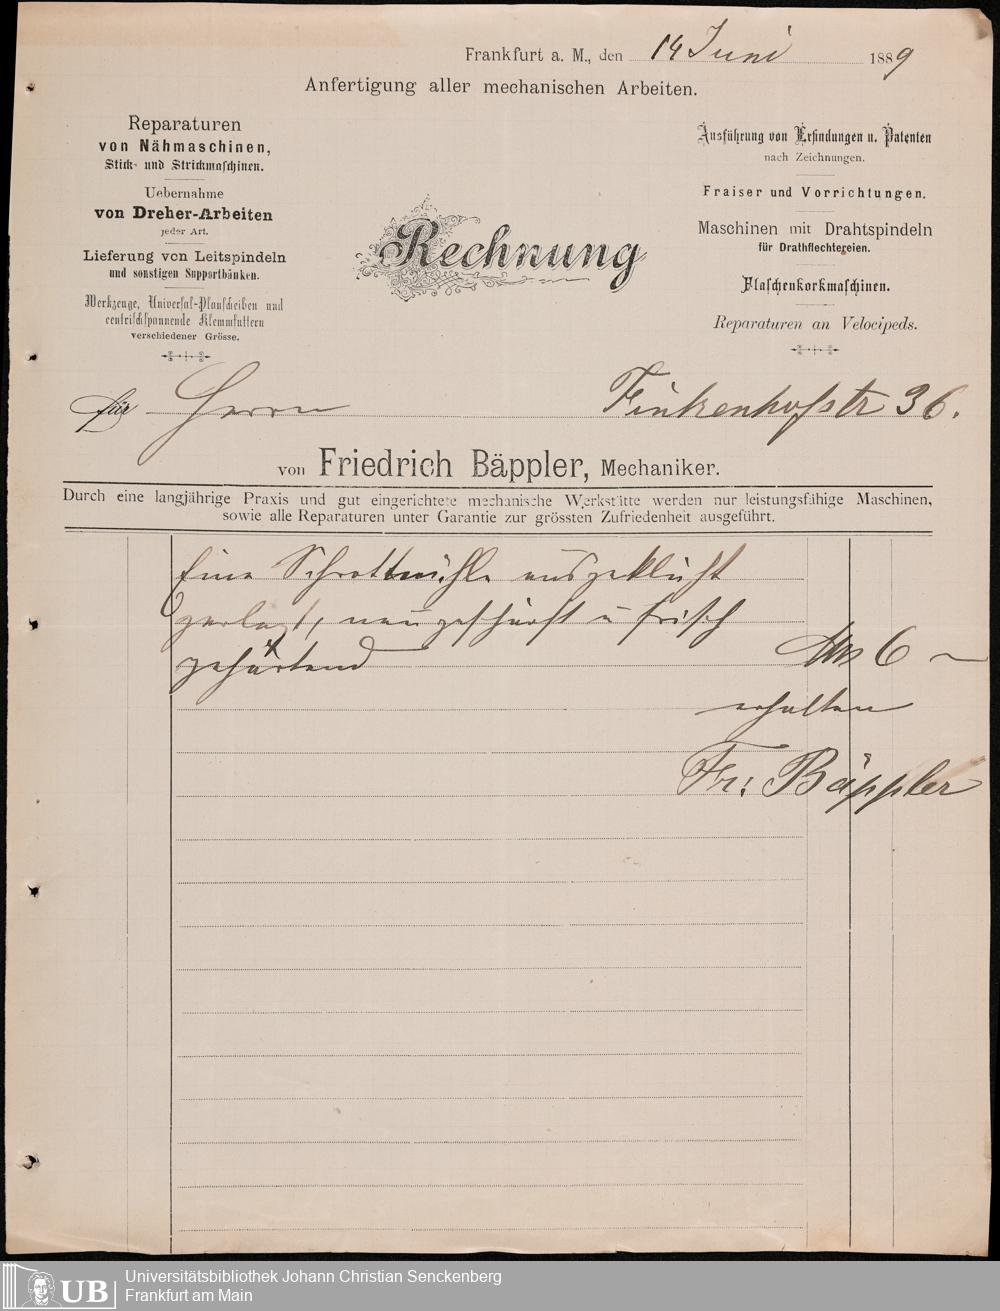 Frankfurt a. M., den 14 Juni 1889
Anfertigung aller mechanischen Arbeiten.
Reparaturen
von Nähmaschinen,
Stick- und Strickmaschinen.
Uebernahme
von Dreher-Arbeiten
jeder Art.
Lieferung von Leitspindeln
und sonstigen Supportbänken.
Werkzeuge, Universal-Planscheiben und
centrischspannende Klemmfuttern
verschiedener Grösse.
Rechnung
Ausführung von Erfindungen u. Patenten
nach Zeichnungen.
Fraiser und Vorrichtungen.
Maschinen mit Drahtspindeln
für Drathflechtereien.
Flaschenkorkmaschinen.
Reparaturen an Velocipeds.
für Herrn Finkenhofstr 36.
von Friedrich Bäppler, Mechaniker.
Durch eine langjährige Praxis und gut eingerichtete mechanische Werkstätte werden nur leistungsfähige Maschinen,
sowie alle Reparaturen unter Garantie zur grössten Zufriedenheit ausgeführt.
Eine Schrottmühle
zerlegt, neu geschärft u frisch
gehärtend 6 –
erhalten
Fr: Bäppler
UB
Universitätsbibliothek Johann Christian Senckenberg
Frankfurt am Main